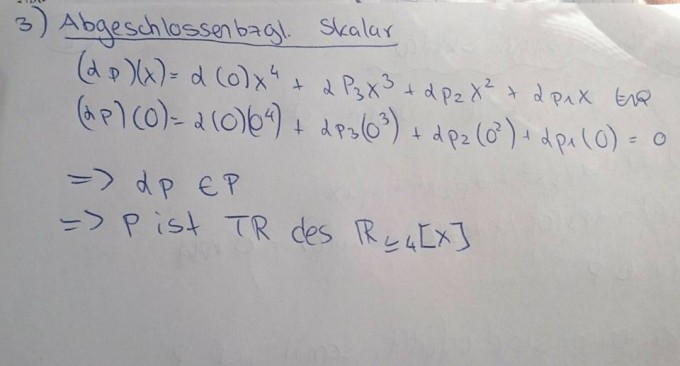 3) Abgeschlossen bzgl. Skalar
(αp)(x) = α(0)x⁴ + αp₃x³ + αp₂x² + αp₁x
(αp)(0) = α(0)(0⁴) + αp₃(0³) + αp₂(0²) + αp₁(0) = 0
=> αp ∈ P
=> P ist TR des ℝ≤₄[x]